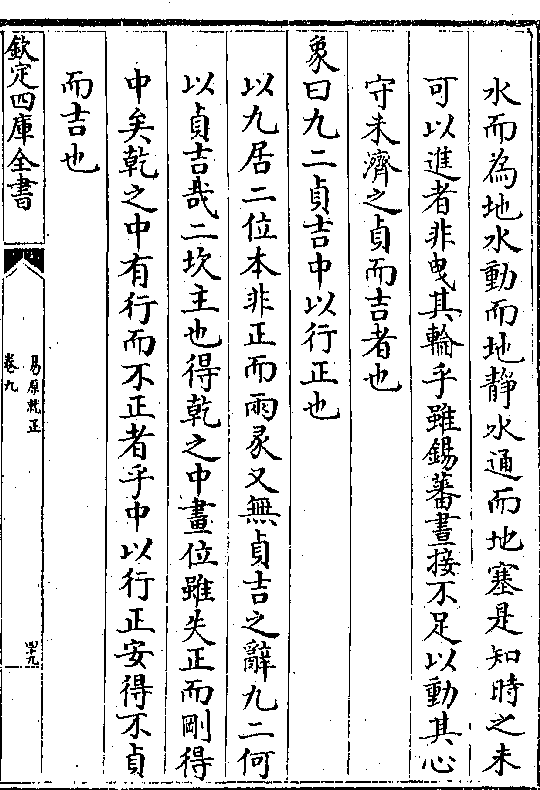 水而為地水動而地静水通而地塞是知時之未
可以進者非曳其輪乎雖錫蕃晝接不足以動其心
守未濟之貞而吉者也
象曰九二貞吉中以行正也
以九居二位本非正而兩彖又無貞吉之辭九二何
以貞吉哉二坎主也得乾之中畫位雖失正而剛得
中矣乾之中有行而不正者乎中以行正安得不貞
而吉也
欽定四庫全書
易原就正
卷九
四十九